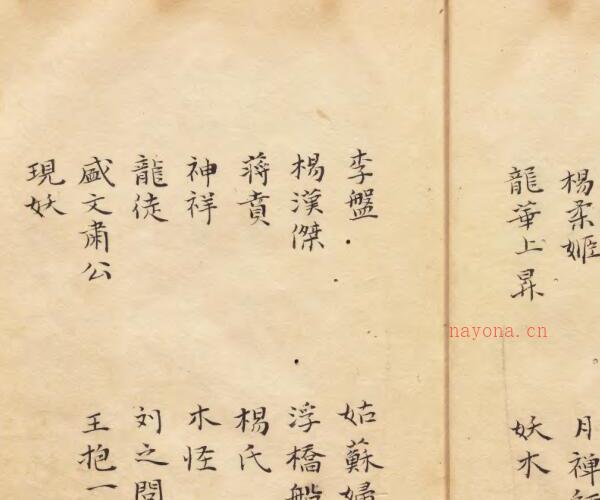 楊柔姬
月禅
龍華上昇
妖木
李盤
姑蘇婦
楊漢傑
浮橋船
蒋賁
楊氏
神祥
木怪
龍徒
刘之問
盛文肅公
王抱一
現妖
nayona.cn